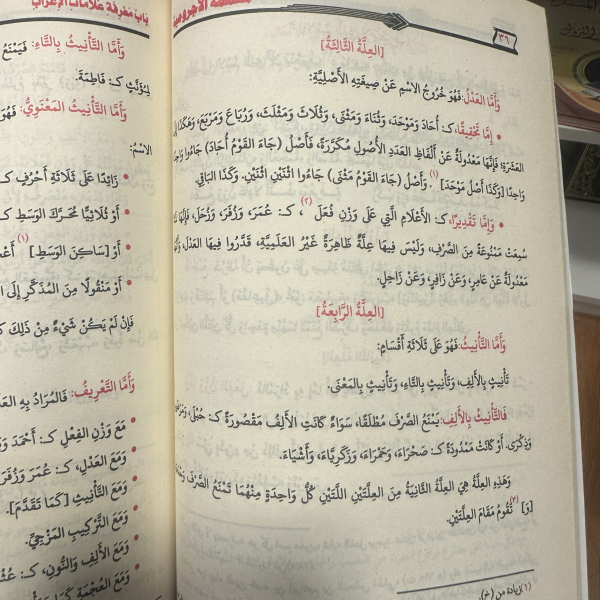 ٣٦
[العِلَّةُ الثَّالِثَةُ]
وَأَمَّا العَدْلُ: فَهُوَ خُرُوجُ الاِسْمِ عَنْ صِيغَتِهِ الأَصْلِيَّةِ:
• إِمَّا تَحْقِيقًا، كَـ: أُحَادَ وَمَوْحَدَ، وَثُنَاءَ وَمَثْنَى، وَثُلَاثَ وَمَثْلَثَ، وَرُبَاعَ وَمَرْبَعَ، وَهَكَذَا إِلَى
العَشَرَةِ؛ فَإِنَّهَا مَعْدُولَةٌ عَنْ أَلْفَاظِ العَدَدِ الأُصُولِ مُكَرَّرَةً، فَأَصْلُ (جَاءَ القَوْمُ أُحَادَ) جَاءُوا
وَاحِدًا [وَكَذَا أَصْلُ مَوْحَدَ] (١). وَأَصْلُ (جَاءَ القَوْمُ مَثْنَى) جَاءُوا اثْنَيْنِ اثْنَيْنِ. وَكَذَا البَاقِي.
• وَإِمَّا تَقْدِيرًا، كَـ: الأَعْلَامِ الَّتِي عَلَى وَزْنِ فُعَلَ (٢)، كَـ: عُمَرَ، وَزُفَرَ، وَزُحَلَ، فَإِنَّهَا
سُمِعَتْ مَمْنُوعَةً مِنَ الصَّرْفِ، وَلَيْسَ فِيهَا عِلَّةٌ ظَاهِرَةٌ غَيْرُ العَلَمِيَّةِ، قَدَّرُوا فِيهَا العَدْلَ،
مَعْدُولَةٌ عَنْ عَامِرٍ، وَعَنْ زَافِرٍ، وَعَنْ زَاحِلٍ.
[العِلَّةُ الرَّابِعَةُ]
وَأَمَّا التَّأْنِيثُ: فَهُوَ عَلَى ثَلَاثَةِ أَقْسَامٍ:
تَأْنِيثٍ بِالأَلِفِ، وَتَأْنِيثٍ بِالتَّاءِ، وَتَأْنِيثٍ بِالمَعْنَى.
فَالتَّأْنِيثُ بِالأَلِفِ: يَمْنَعُ الصَّرْفَ مُطْلَقًا، سَوَاءٌ كَانَتِ الأَلِفُ مَقْصُورَةً كَـ: حُبْلَى،
وَذِكْرَى. أَوْ كَانَتْ مَمْدُودَةً كَـ: صَحْرَاءَ، وَحَمْرَاءَ، وَزَكَرِيَّاءَ، وَأَشْيَاءَ.
وَهَذِهِ العِلَّةُ هِيَ العِلَّةُ الثَّانِيَةُ مِنَ العِلَّتَيْنِ اللَّتَيْنِ كُلُّ وَاحِدَةٍ مِنْهُمَا تَمْنَعُ الصَّرْفَ
[وَ] (٣) تَقُومُ مَقَامَ العِلَّتَيْنِ.
(١) زيادة من (خ).
بَابُ مَعْرِفَةِ عَلَامَاتِ الإِعْرَابِ
وَأَمَّا التَّأْنِيثُ بِالتَّاءِ: فَيَمْنَعُ
لِمُؤَنَّثٍ كَـ: فَاطِمَةَ.
وَأَمَّا التَّأْنِيثُ المَعْنَوِيُّ: فَهُوَ
الاسْمُ:
• زَائِدًا عَلَى ثَلَاثَةِ أَحْرُفٍ كَـ
• أَوْ ثُلَاثِيًّا مُحَرَّكَ الوَسَطِ كَـ
• أَوْ [سَاكِنَ الوَسَطِ] (١)
• أَوْ مَنْقُولًا مِنَ المُذَكَّرِ إِلَى
فَإِنْ لَمْ يَكُنْ شَيْءٌ مِنْ ذَلِكَ
وَأَمَّا التَّعْرِيفُ: فَالمُرَادُ بِهِ
• مَعَ وَزْنِ الفِعْلِ كَـ: أَحْمَدَ
• وَمَعَ العَدْلِ، كَـ: عُمَرَ وَزُفَرَ
• وَمَعَ التَّأْنِيثِ [كَمَا تَقَدَّمَ].
• وَمَعَ التَّرْكِيبِ المَزْجِيِّ.
• وَمَعَ الأَلِفِ وَالنُّونِ، كَـ:
• وَمَعَ العُجْمَةِ